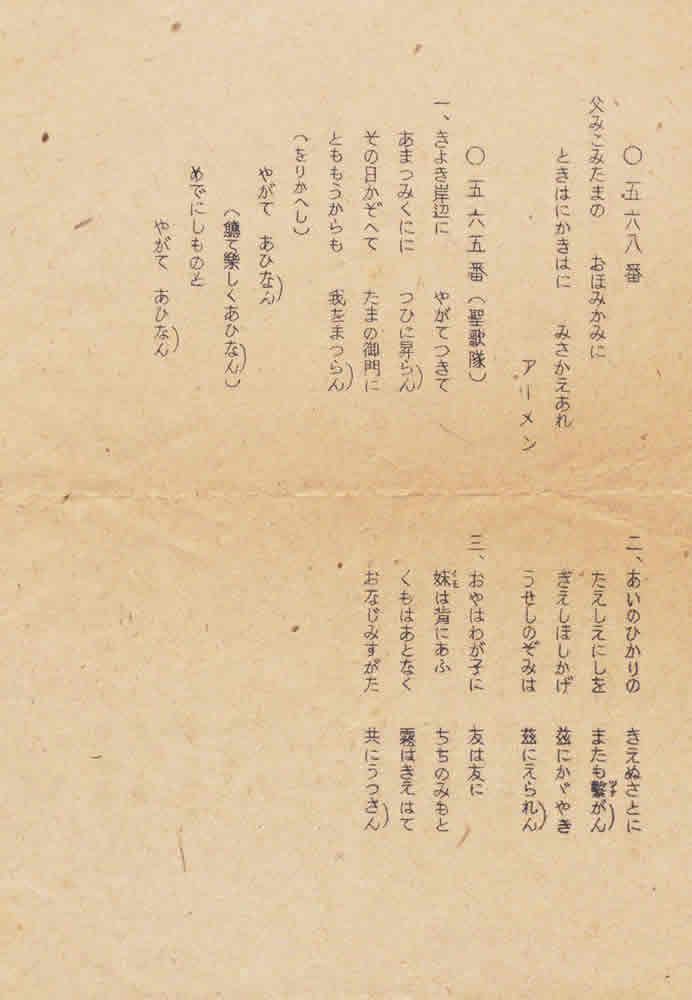 〇 五 六 八 番
父みこみたまの おほみかみに
ときはにかきはに みさかえあれ
アーメン
〇 五 六 五 番 (聖歌隊)
一、きよき岸辺に やがてつきて
あまつみくにに つひに昇らん)
その日かぞへて たまの御門に
とももうからも 我をまつらん)
(をりかへし)
やがて あひなん)
(軈て楽しくあひなん))
めでにしものと
やがて あひなん)
二、あいのひかりの きえぬさとに
たえしえにしを またも繋がん)
ツナ
ぎえしほしかげ 玆にかゞやき
うせしのぞみは 玆にえられん)
三、おやはわが子に 友は友に
妹は背にあふ ちちのみもと
イモ
くもはあとなく 霧はきえはて
おなじみすがた 共にうつさん)